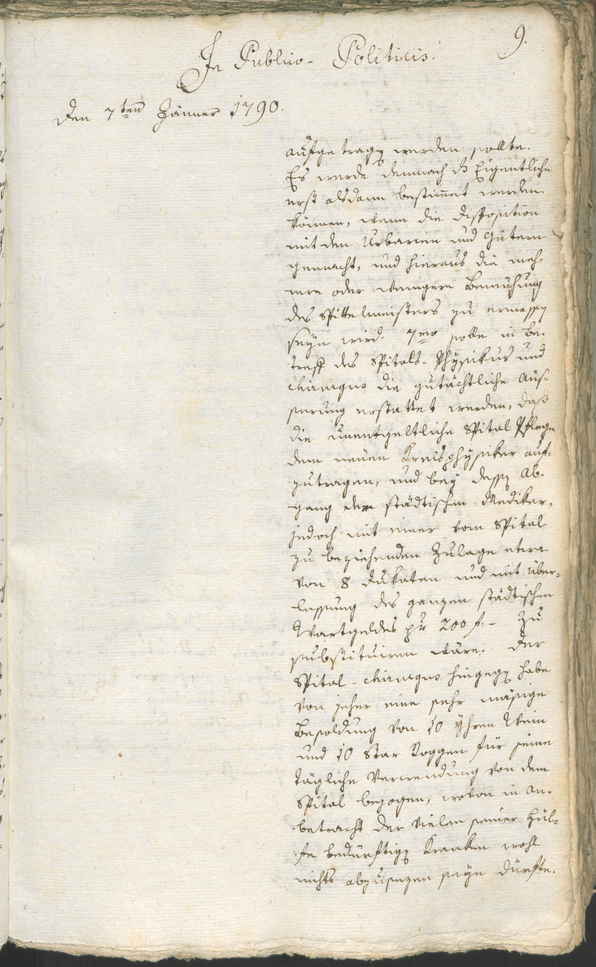 9.
In Publico-Politicis.
Den 7ten Jänner 1790.
aufgetragen werden sollte.
Es werde demnach das Eigentliche
erst alsdann bestimmt werden
können, wenn die Disposition
mit den Urbarien und Gütern
gemacht, und hieraus die meh-
rere oder wenigere Bemühung
des Spittelmeisters zu ermessen
seyn wird. 7mo solle in Be-
treff des Spitals-Physikus und
Chirurgus die gutächtliche Aeus-
serung erstattet werden, daß
die unentgeltliche Spital Pflege
dem neuen Kreisphysiker auf-
zutragen, und bey dessen Ab-
gang dem städtischen Mediker,
jedoch mit einer vom Spital
zu beziehenden Zulage etwa
von 8 Dukaten und mit Über-
lassung des ganzen städtischen
Wartgeldes pr 200 f.- zu
substituiren wäre. Der
Spital-Chirurgus hingegen habe
von jeher eine sehr mäsige
Besoldung von 10 Yhren Wein
und 10 Star Roggen für seine
tägliche Verwendung von dem
Spital bezogen, wovon in An-
betracht der vielen seiner Hül-
fe bedürftigen Kranken wohl
nichts abzusezen seyn dürfte.